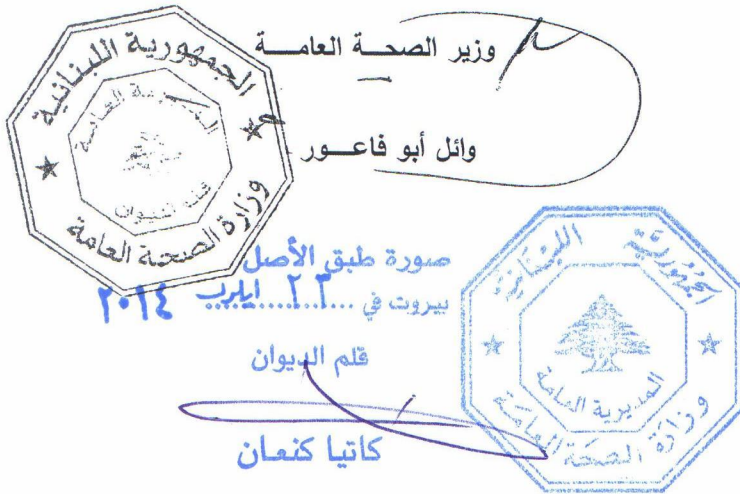 وزير الصحـــة العامـــة
وائل أبو فاعـــور
الجمهورية اللبنانية
المديرية العامة
قلم الديوان
وزارة الصحة العامة
صورة طبق الأصل
بيروت في ٢٣ ايلول ٢٠١٤
قلم الديوان
كاتيا كنعان
الجمهورية اللبنانية
المديرية العامة
وزارة الصحة العامة